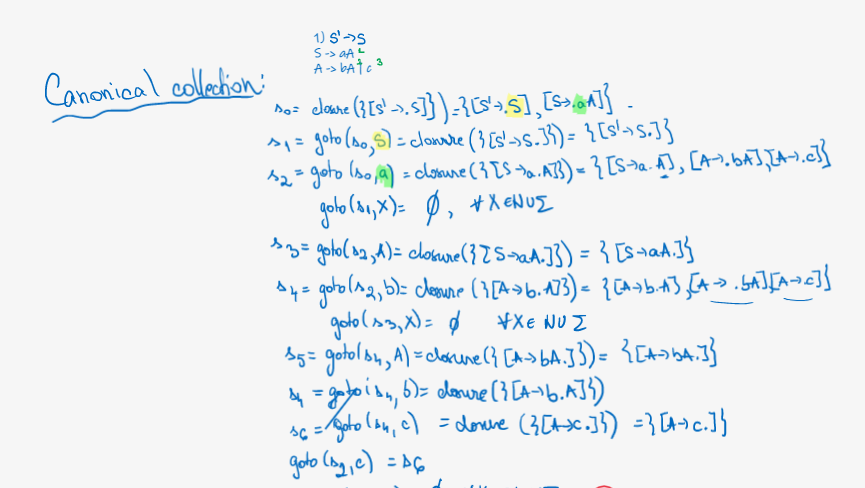 1) S'->S
S->aA 1
A->bA 2 | c 3
Canonical collection:
s0= closure({[S'->.S]})={[S'->.S], [S->.aA]}
s1 = goto(s0,S) = closure({[S'->S.]})= {[S'->S.]}
s2 = goto(s0,a) = closure({[S->a.A]})= {[S->a.A], [A->.bA],[A->.c]}
goto(s1,X)= ∅, ∀X∈N∪Σ
s3 = goto(s2,A)= closure({[S->aA.]}) = {[S->aA.]}
s4 = goto(s2,b)= closure({[A->b.A]})= {[A->b.A],[A->.bA][A->.c]}
goto(s3,X)= ∅ ∀X∈ N∪Σ
s5= goto(s4,A)=closure({[A->bA.]})= {[A->bA.]}
s4 = goto(s4,b)= closure({[A->b.A]})
s6 = goto(s4,c) = closure({[A->c.]}) ={[A->c.]}
goto(s2,c) = s6